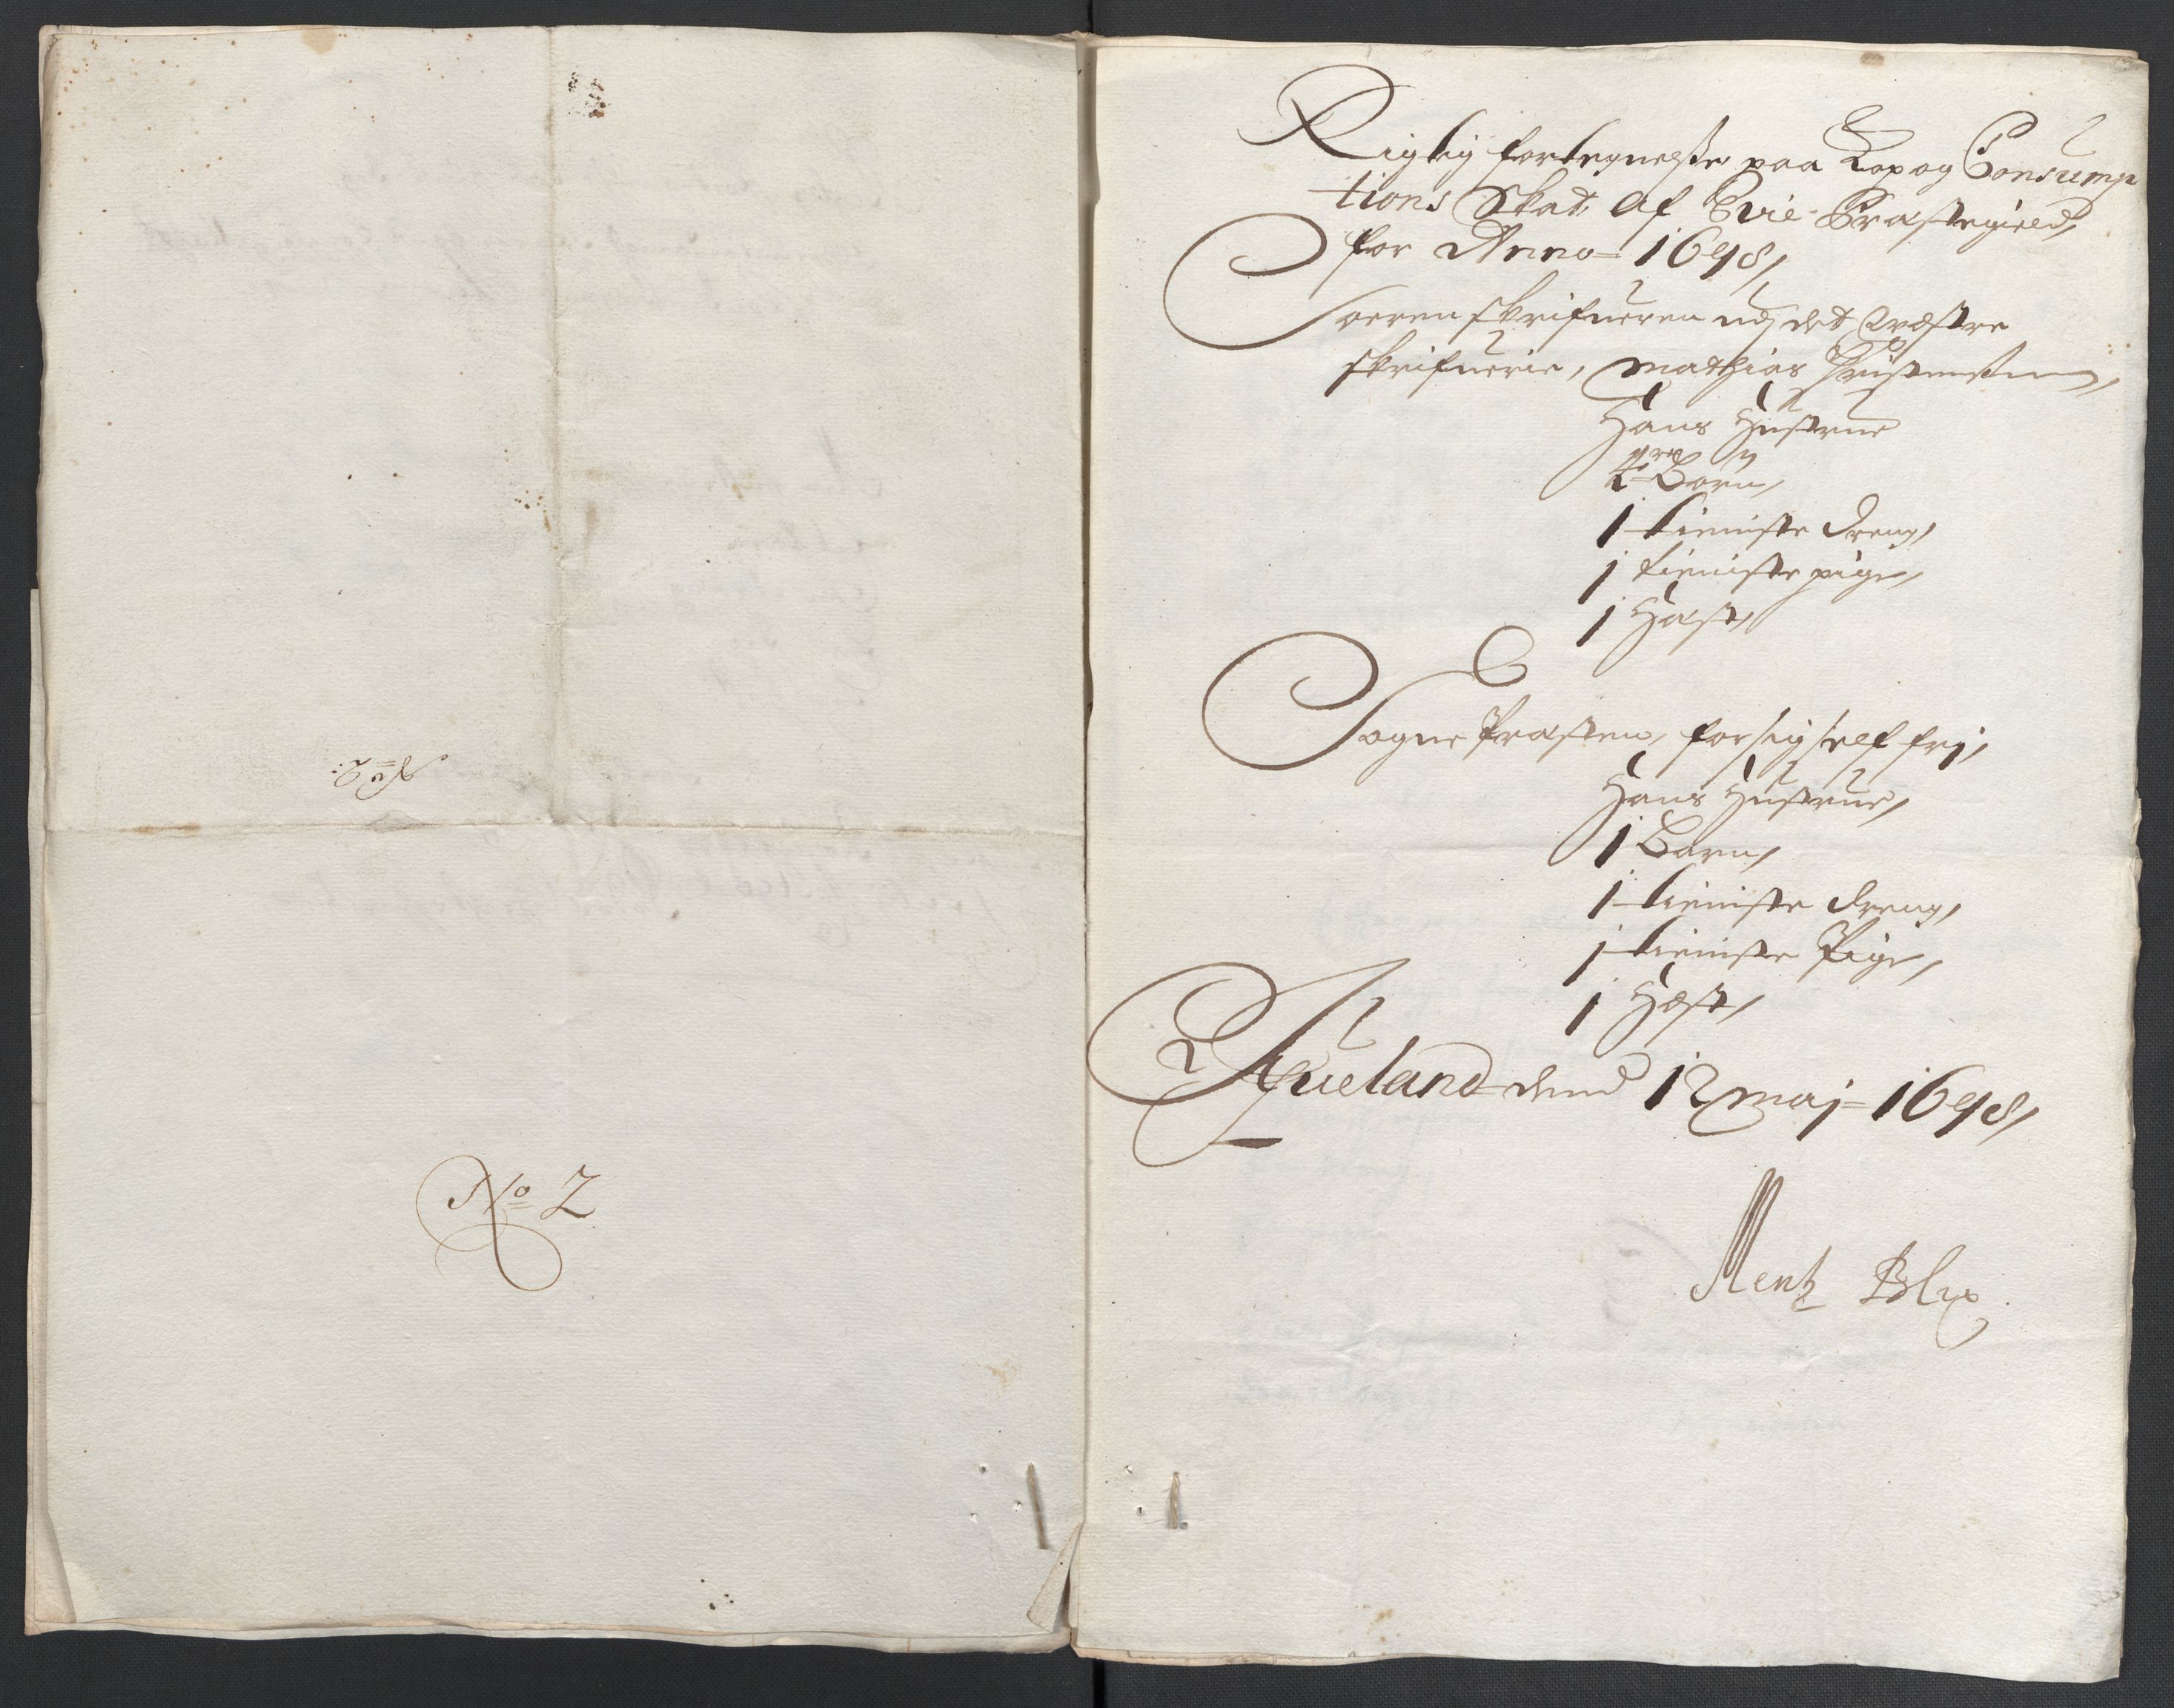 No 2:
No 2
Rigtig fortegnelße paa Kop og Consump
tions Skat, Af Evie Præstegield,
for Anno 1698,
Soerenskrifueren udj det Westre
skrifuerie, Mathias Christensen,
Hans Hustrue
2 Børn,
1 tieniste dreng,
1 tieniste pige,
1 Hæst,
Sogne Præsten, for sig self frj,
Hans Hustrue,
1 Barn,
1 tieniste dreng,
1 tieniste Pige,
1 Hæst,
Aueland dend 12 Maj 1698,
Mentz Blix